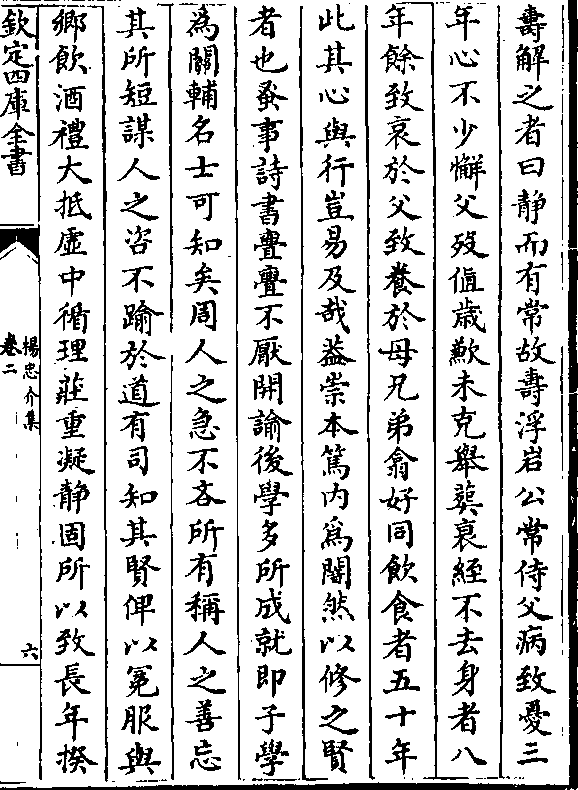 壽解之者曰靜而有常故壽浮岩公常侍父病致憂三
年心不少懈父歿値歲歉未克舉𦵏衰絰不去身者八
年餘致哀於父致養於母兄弟翕好同飲食者五十年
此其心與行豈易及哉葢崇本篤内為闇然以修之賢
者也蚤事詩書亹亹不厭開諭後學多所成就即子學
為關輔名士可知矣周人之急不吝所有稱人之善忘
其所短謀人之咨不踰於道有司知其賢俾以冕服與
鄉飲酒禮大抵虚中循理莊重凝静固所以致長年揆
欽定四庫全書
楊忠介集
卷二
六